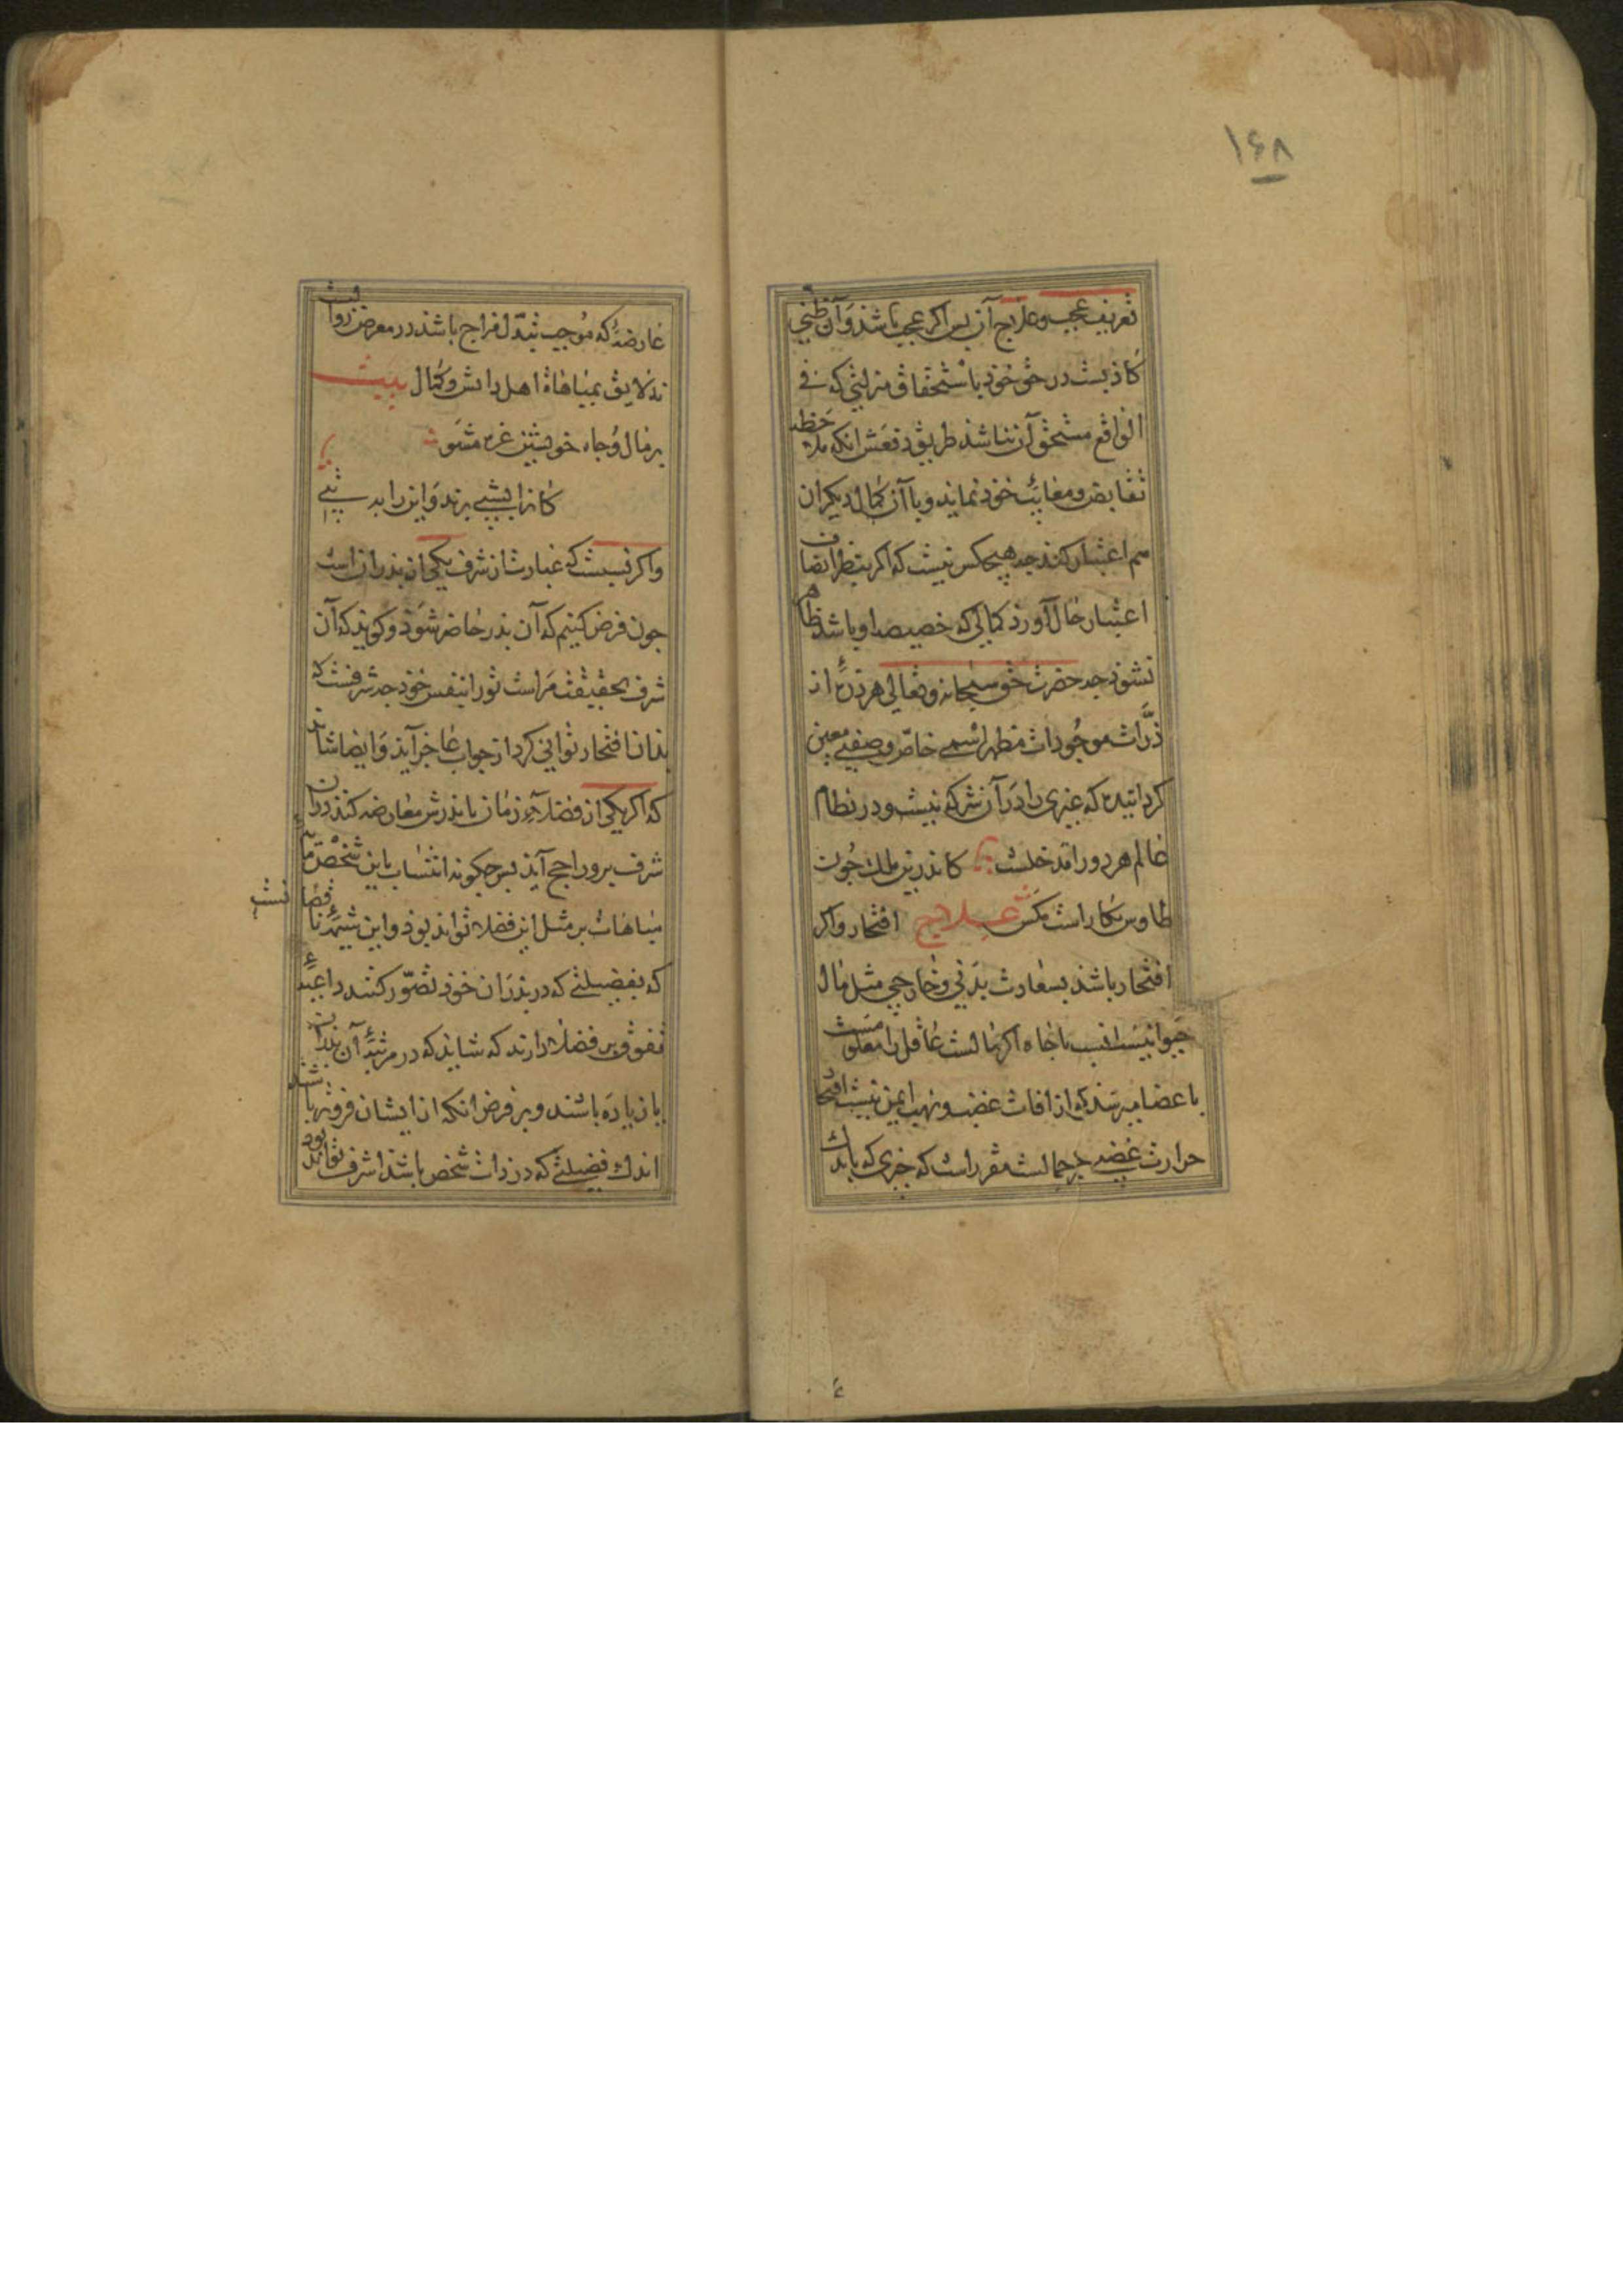 ۱۶۸
تعریف عجب و علاج آن پس اکر عجب باشذ و آن ظنّی
کاذبست در حق خوذ باستحقاق منزلتی که فی
الواقع مستحق آن نباشذ طریق دفعش انکه ملاحظه
نقایص و معایب خوذ نمایذ و با آن کمال دیکران
هم اعتبار کند جه هیچکس نیست که اکر بنظر انصاف
اعتبار حال آورد کمالی که خصیصه او باشذ ظاهر
نشوذ جه حضرت حق سبحانه و تعالی هر ذرّهٔ از
ذرّات موجودات مظهر اسمی خاصّ و صفتی معین
کردانیده که غیری را در آن شرکه نیست و در نظام
عالم هر دو را مدخلست کاندرین ملک جون
طاوس بکار است مکس علاج افتخار و اکر
افتخار باشذ بسعادت بدنی و خارجی مثل مال
و جاه
باعضا میرسد که از افات غضب و نهب ایمن نیست
حرارت غضبی مقرر است که جیزی که باندک
عارضهٔ که موجب تبدل مزاج باشذ در معرض زوالست
نه لایق بمباهاة اهل دانش و کمال بیت
بر مال و جاه خویشتن غره مشو
کانرا بشبی برند و این را به تبی
و اکر نسبست که عبارت از شرف یکی از پدران است
جون فرض کنیم که آن پدر حاضر شوذ و کویذ که آن
شرف بحقیقت مراست تو را بنفس خوذ جه شرفست که
بذان افتخار توانی کرد از جواب عاجز آیذ و ایضا شاید
که اکر یکی از فضلاء زمان با پدرش معارضه کند در آن
شرف برو راجح آیذ پس جکونه انتساب باین شخص
مباهات بر مثل این فضلا تواند بوذ و این
که بفضیلتی که در پذران خوذ تصوّر کنند داعیهٔ
تفوق بر فضلا دارند که شایذ که در مرتبهٔ آن پدران
یا زیاده باشند و بر فرض انکه از ایشان فروتر باشند
اندک فضیلتی که در ذات شخص باشذ اشرف تواند بود